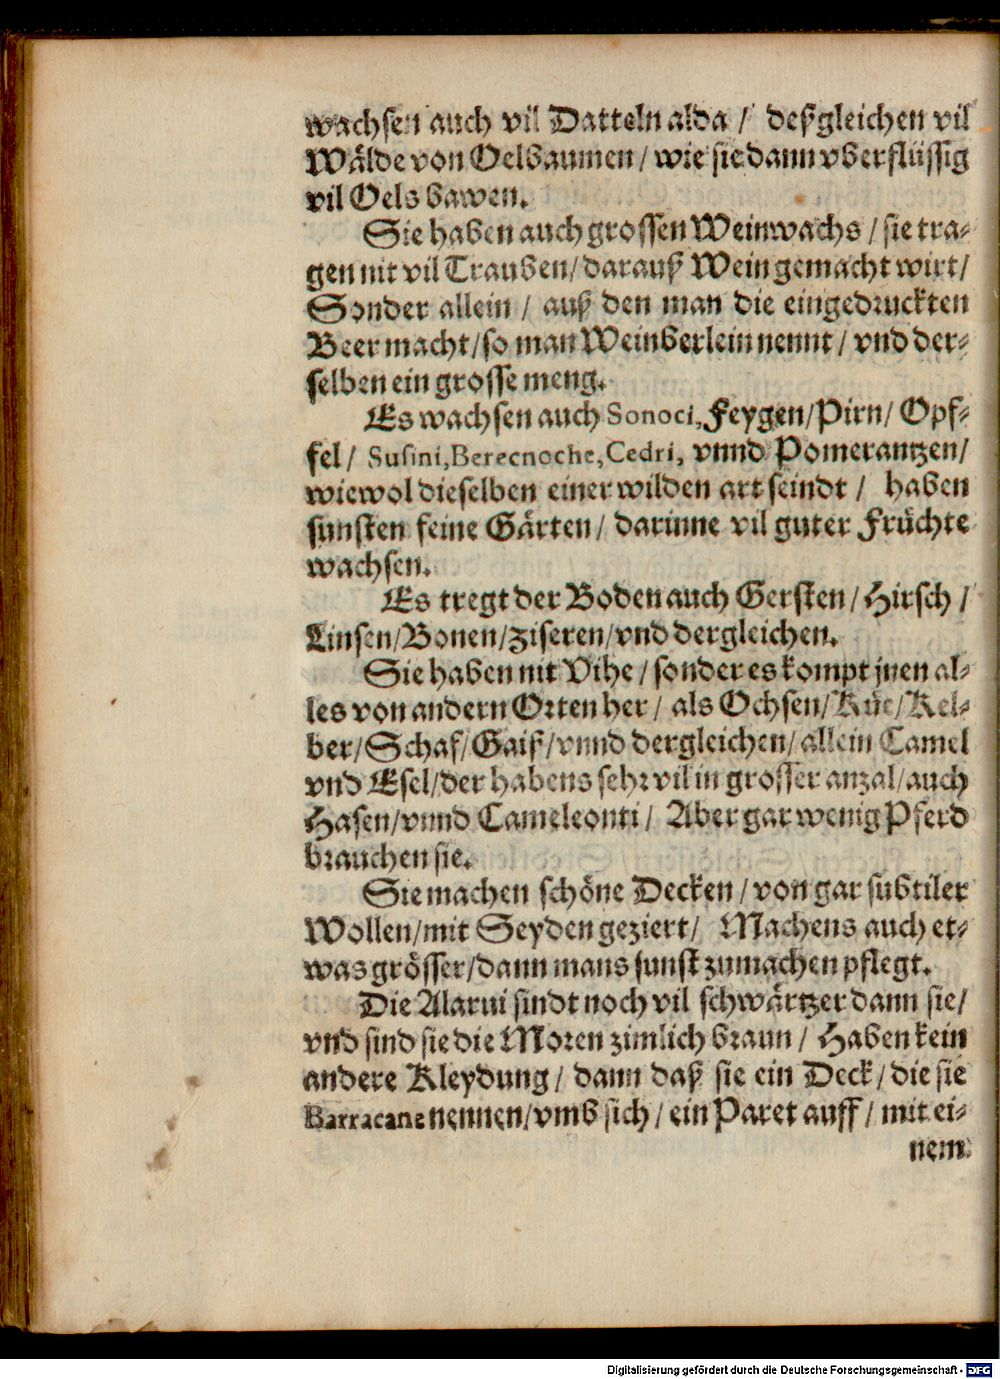 wachsen auch vil Datteln alda / deßgleichen vil
Wälde von Oelbaumen / wie sie dann vberflüssig
vil Oels bawen.
Sie haben auch grossen Weinwachs / sie tra⸗
gen nit vil Trauben / darauß Wein gemacht wirt /
Sonder allein / auß den man die eingedruckten
Beer macht / so man Weinberlein nennt / vnd der⸗
selben ein grosse meng.
Es wachsen auch Sonoci, Feygen / Pirn / Opf⸗
fel / Susini, Berecnoche, Cedri, vnnd Pomerantzen /
wiewol dieselben einer wilden art seindt / haben
sunsten feine Gärten / darinne vil guter Früchte
wachsen.
Es tregt der Boden auch Gersten / Hirsch /
Linsen / Bonen / ziseren / vnd dergleichen.
Sie haben nit Vihe / sonder es kompt jnen al⸗
les von andern Orten her / als Ochsen / Küe / Kel⸗
ber / Schaf / Gaiß / vnnd dergleichen / allein Camel
vnd Esel / der habens sehr vil in grosser anzal / auch
Hasen / vnnd Cameleonti / Aber gar wenig Pferd
brauchen sie.
Sie machen schöne Decken / von gar subtiler
Wollen / mit Seyden geziert / Machens auch et⸗
was grösser / dann mans sunst zumachen pflegt.
Die Alarui sindt noch vil schwärtzer dann sie /
vnd sind sie die Moren zimlich braun / Haben kein
andere Kleydung / dann daß sie ein Deck / die sie
Barracane nennen / vmb sich / ein Paret auff / mit ei⸗
nem
Digitalisierung gefördert durch die Deutsche Forschungsgemeinschaft - DFG